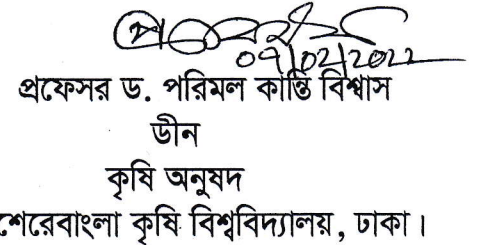 07/02/2022
প্রফেসর ড. পরিমল কান্তি বিশ্বাস
ডীন
কৃষি অনুষদ
শেরেবাংলা কৃষি বিশ্ববিদ্যালয়, ঢাকা।